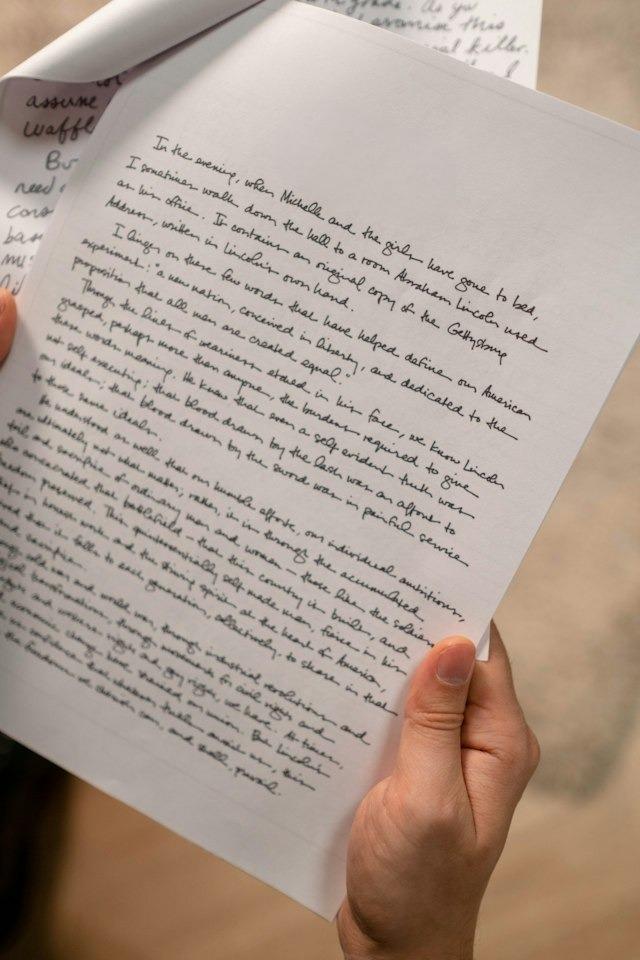 grade. As you
this
killer.
assume
waffl
Bu
need
cons
bas
mus
In the evening, when Michelle and the girls have gone to bed,
I sometimes walk down the hall to a room Abraham Lincoln used
as his office. It contains an original copy of the Gettysburg
Address, written in Lincoln's own hand.
I linger on these few words that have helped define our American
experiment: "a new nation, conceived in liberty, and dedicated to the
proposition that all men are created equal."
Through the lines of weariness etched in his face, we know Lincoln
grasped, perhaps more than anyone, the burdens required to give
these words meaning. He knew that even a self evident truth was
not self executing; that blood drawn by the lash was an affront to
our ideals; that blood drawn by the sword was in painful service
to those same ideals.
He understood as well that our humble efforts, our individual ambitions,
are ultimately not what matter; rather, it is through the accumulated
toil and sacrifice of ordinary men and women – those like the soldiers
who consecrated that battlefield – that this country is built, and
freedom preserved. This quintessentially self made man, fierce in his
belief in honest work and the striving spirit at the heart of America,
believed that it falls to each generation, collectively, to share in that
toil and sacrifice.
cold war and world war, through industrial revolutions and
transformations, through movements for civil rights and
and women's rights and gay rights, we have. At times,
economic change have strained our union. But Lincoln's
us confidence that whatever trials await us, this
the freedom we cherish can, and shall, prevail.